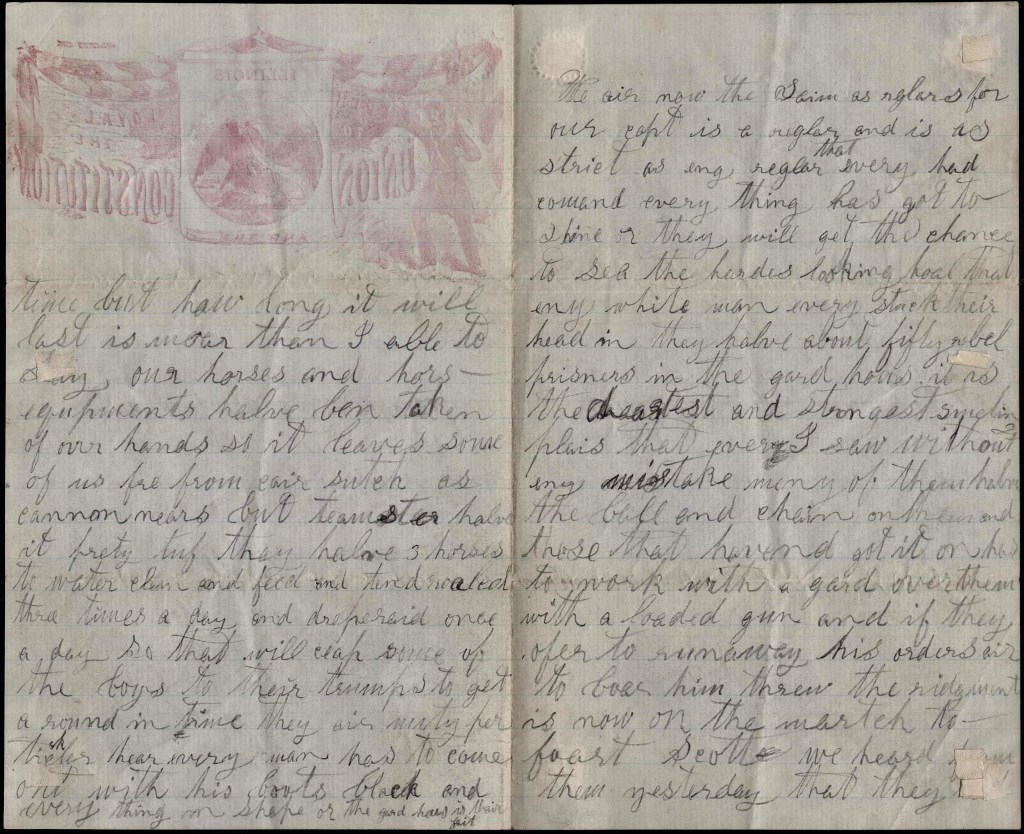 ILLINOIS
LOYAL
TO
THE
UNION
AND THE
CONSTITUTION
time but haw long it will
last is moar than I able to
say our horses and hors-
equipments halve ben taken
of ourr hands so it leaves some
of us fre from cair sutch as
cannonnears but teamster halve
it prety tuf thay halve 3 horses
to water clean and feed and tend
three times a day and drsperaid once
a day so that will ceap some of
the boys to their trumps to get
a round in time they air mity per
ticker hear every man has to come
out with his boots black and
every thing in shape or the gard hous is thair
fait
We air now the Saim as rglars for
our capt is a ruglar and is as
strict as eng reglar that every had
comand every thing has got to
shine or they will get the chance
to sea the hardes looking hoal that
eny white man every stuck their
head in they halve about fifty rebel
prisners in the gard hous it is
the and strongest smeling
plais that every I saw without
eny mistake meny of them halve
the ball and chain on them and
those that havend got it on has
to work with a gard over them
with a loaded gun and if they
ofer to runaway his orders air
to boar him threw the ridgment
is now on the martch to-
foart Scott we heard from
them yesterday that they